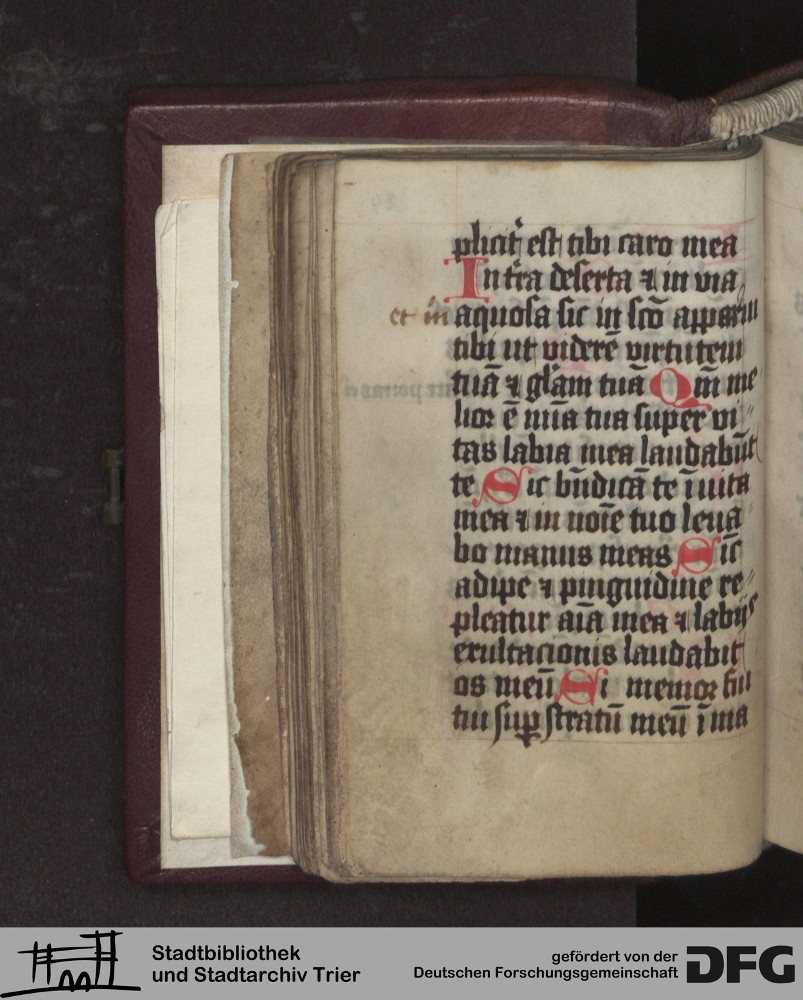 plicit᷑ est tibi caro mea
In t̄ra deserta ⁊ in via
et in aquosa sic in sc̄o apparui
tibi ut viderē virtutem
tuā ⁊ gl̄am tuā Qm̄ me
lior ē mīa tua super vi
tas labia mea laudabūt
te Sic bn̄dicā te ī uita
mea ⁊ in noīe tuo leua
bo manus meas Sic̄
adipe ⁊ pinguidine re
pleatur aīa mea ⁊ labijs
exultacionis laudabit
os meū Si memor fui
tui suꝑ stratū meū ī ma
Stadtbibliothek
und Stadtarchiv Trier
gefördert von der
Deutschen Forschungsgemeinschaft
DFG